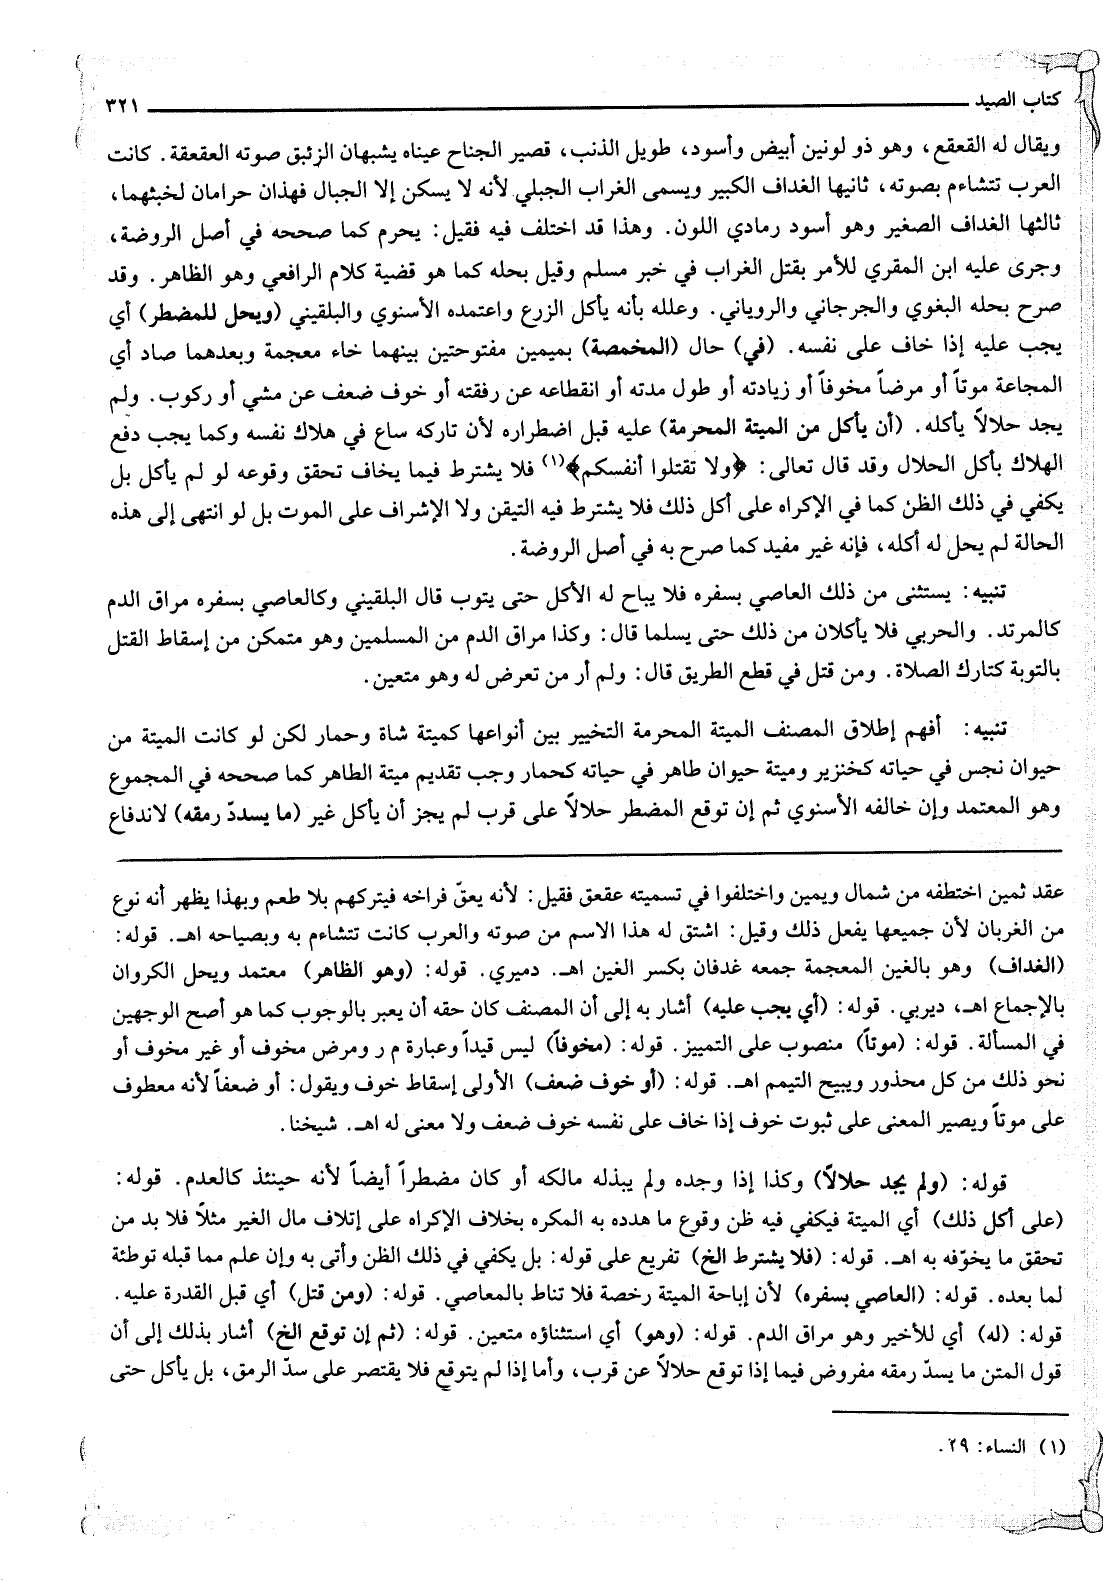 كتاب الصيد ٣٢١
ويقال له القعقع، وهو ذو لونين أبيض وأسود، طويل الذنب، قصير الجناح عيناه يشبهان الزئبق صوته العقعقة. كانت
العرب تتشاءم بصوته، ثانيها الغداف الكبير ويسمى الغراب الجبلي لأنه لا يسكن إلا الجبال فهذان حرامان لخبثهما،
ثالثها الغداف الصغير وهو أسود رمادي اللون. وهذا قد اختلف فيه فقيل: يحرم كما صححه في أصل الروضة،
وجرى عليه ابن المقري للأمر بقتل الغراب في خبر مسلم وقيل بحله كما هو قضية كلام الرافعي وهو الظاهر. وقد
صرح بحله البغوي والجرجاني والروياني. وعلله بأنه يأكل الزرع واعتمده الأسنوي والبلقيني (ويحل للمضطر) أي
يجب عليه إذا خاف على نفسه. (في) حال (المخمصة) بميمين مفتوحتين بينهما خاء معجمة وبعدهما صاد أي
المجاعة موتاً أو مرضاً مخوفاً أو زيادته أو طول مدته أو انقطاعه عن رفقته أو خوف ضعف عن مشي أو ركوب. ولم
يجد حلالاً يأكله. (أن يأكل من الميتة المحرمة) عليه قبل اضطراره لأن تاركه ساع في هلاك نفسه وكما يجب دفع
الهلاك بأكل الحلال وقد قال تعالى: ﴿ولا تقتلوا أنفسكم﴾(١) فلا يشترط فيما يخاف تحقق وقوعه لو لم يأكل بل
يكفي في ذلك الظن كما في الإكراه على أكل ذلك فلا يشترط فيه التيقن ولا الإشراف على الموت بل لو انتهى إلى هذه
الحالة لم يحل له أكله، فإنه غير مفيد كما صرح به في أصل الروضة.
تنبيه: يستثنى من ذلك العاصي بسفره فلا يباح له الأكل حتى يتوب قال البلقيني وكالعاصي بسفره مراق الدم
كالمرتد. والحربي فلا يأكلان من ذلك حتى يسلما قال: وكذا مراق الدم من المسلمين وهو متمكن من إسقاط القتل
بالتوبة كتارك الصلاة. ومن قتل في قطع الطريق قال: ولم أر من تعرض له وهو متعين.
تنبيه: أفهم إطلاق المصنف الميتة المحرمة التخيير بين أنواعها كميتة شاة وحمار لكن لو كانت الميتة من
حيوان نجس في حياته كخنزير وميتة حيوان طاهر في حياته كحمار وجب تقديم ميتة الطاهر كما صححه في المجموع
وهو المعتمد وإن خالفه الأسنوي ثم إن توقع المضطر حلالاً على قرب لم يجز أن يأكل غير (ما يسدّ رمقه) لاندفاع
عقد ثمين اختطفه من شمال ويمين واختلفوا في تسميته عقعق فقيل: لأنه يعقّ فراخه فيتركهم بلا طعم وبهذا يظهر أنه نوع
من الغربان لأن جميعها يفعل ذلك وقيل: اشتق له هذا الاسم من صوته والعرب كانت تتشاءم به وبصياحه اهـ. قوله:
(الغداف) وهو بالغين المعجمة جمعه غدفان بكسر الغين اهـ. دميري. قوله: (وهو الظاهر) معتمد ويحل الكروان
بالإجماع اهـ، ديربي. قوله: (أي يجب عليه) أشار به إلى أن المصنف كان حقه أن يعبر بالوجوب كما هو أصح الوجهين
في المسألة. قوله: (موتاً) منصوب على التمييز. قوله: (مخوفاً) ليس قيداً وعبارة م ر ومرض مخوف أو غير مخوف أو
نحو ذلك من كل محذور ويبيح التيمم اهـ. قوله: (أو خوف ضعف) الأولى إسقاط خوف ويقول: أو ضعفاً لأنه معطوف
على موتاً ويصير المعنى على ثبوت خوف إذا خاف على نفسه خوف ضعف ولا معنى له اهـ. شيخنا.
قوله: (ولم يجد حلالاً) وكذا إذا وجده ولم يبذله مالكه أو كان مضطراً أيضاً لأنه حينئذ كالعدم. قوله:
(على أكل ذلك) أي الميتة فيكفي فيه ظن وقوع ما هدده به المكره بخلاف الإكراه على إتلاف مال الغير مثلاً فلا بد من
تحقق ما يخوّفه به اهـ. قوله: (فلا يشترط الخ) تفريع على قوله: بل يكفي في ذلك الظن وأتى به وإن علم مما قبله توطئة
لما بعده. قوله: (العاصي بسفره) لأن إباحة الميتة رخصة فلا تناط بالمعاصي. قوله: (ومن قتل) أي قبل القدرة عليه.
قوله: (له) أي للأخير وهو مراق الدم. قوله: (وهو) أي استثناؤه متعين. قوله: (ثم إن توقع الخ) أشار بذلك إلى أن
قول المتن ما يسدّ رمقه مفروض فيما إذا توقع حلالاً عن قرب، وأما إذا لم يتوقع فلا يقتصر على سدّ الرمق، بل يأكل حتى
(١) النساء: ٢٩.